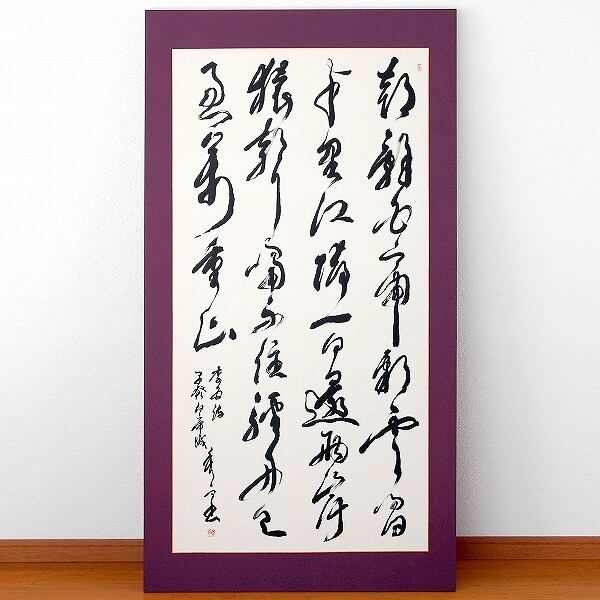 朝辭白帝彩雲間
千里江陵一日還兩岸
猿聲啼不住輕舟已
過萬重山
李白詩
早發白帝城